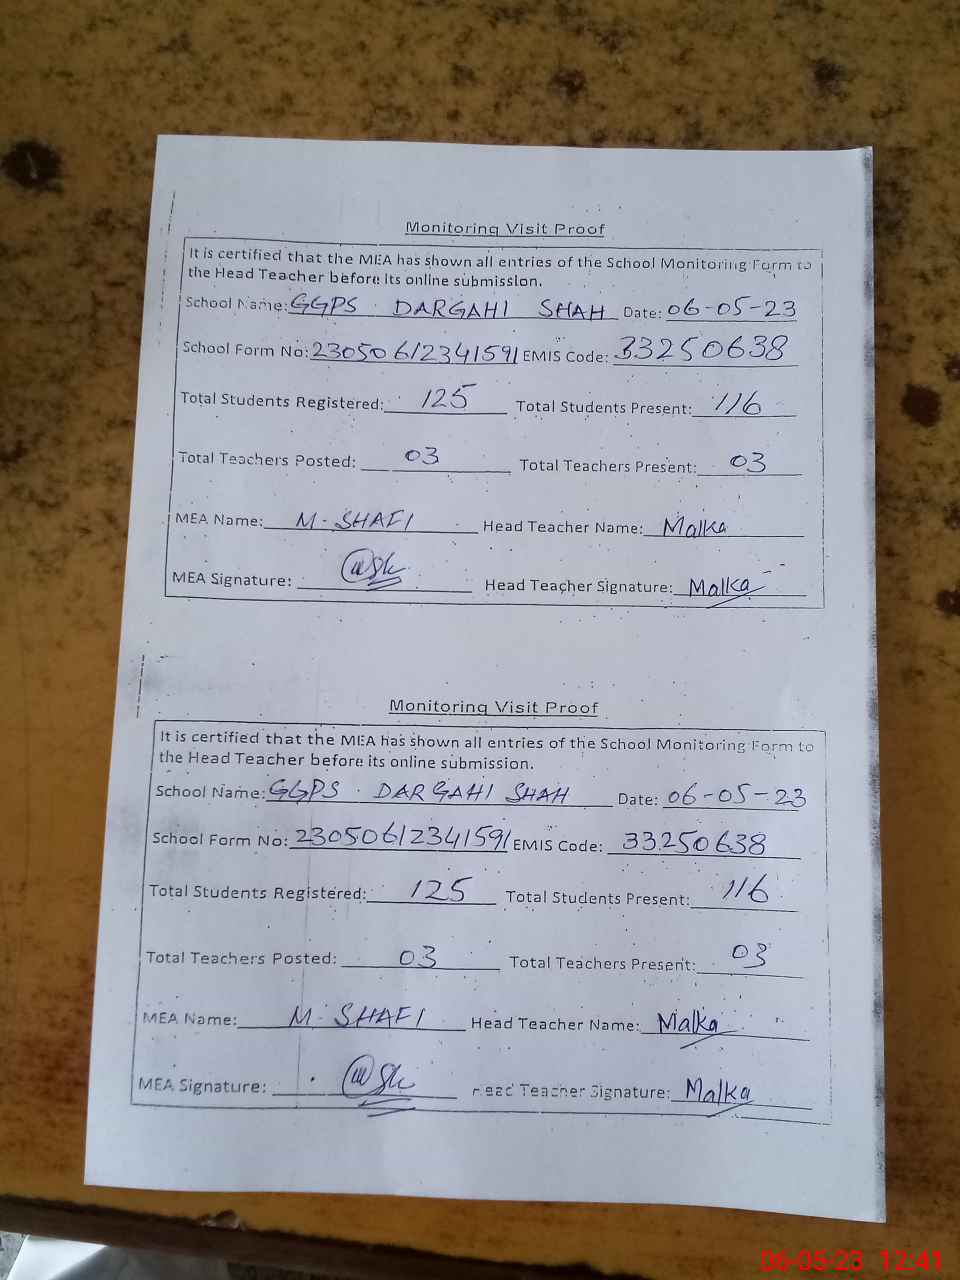 Monitoring Visit Proof
It is certified that the MEA has shown all entries of the School Monitoring Form to
the Head Teacher before its online submission.
School Name: GGPS DARGAHI SHAH Date: 06-05-23
School Form No: 230506/2341591 EMIS Code: 33250638
Total Students Registered: 125 Total Students Present: 116
Total Teachers Posted: 03 Total Teachers Present: 03
MEA Name: M. SHAFI Head Teacher Name: Malka
MEA Signature: Head Teacher Signature: Malka
Monitoring Visit Proof
It is certified that the MEA has shown all entries of the School Monitoring Form to
the Head Teacher before its online submission.
School Name: GGPS . DARGAHI SHAH Date: 06-05-23
School Form No: 230506/2341591 EMIS Code: 33250638
Total Students Registered: 125 Total Students Present: 116
Total Teachers Posted: 03 Total Teachers Present: 03
MEA Name: M. SHAFI Head Teacher Name: Malka
MEA Signature: Head Teacher Signature: Malka
06-05-23 12:41